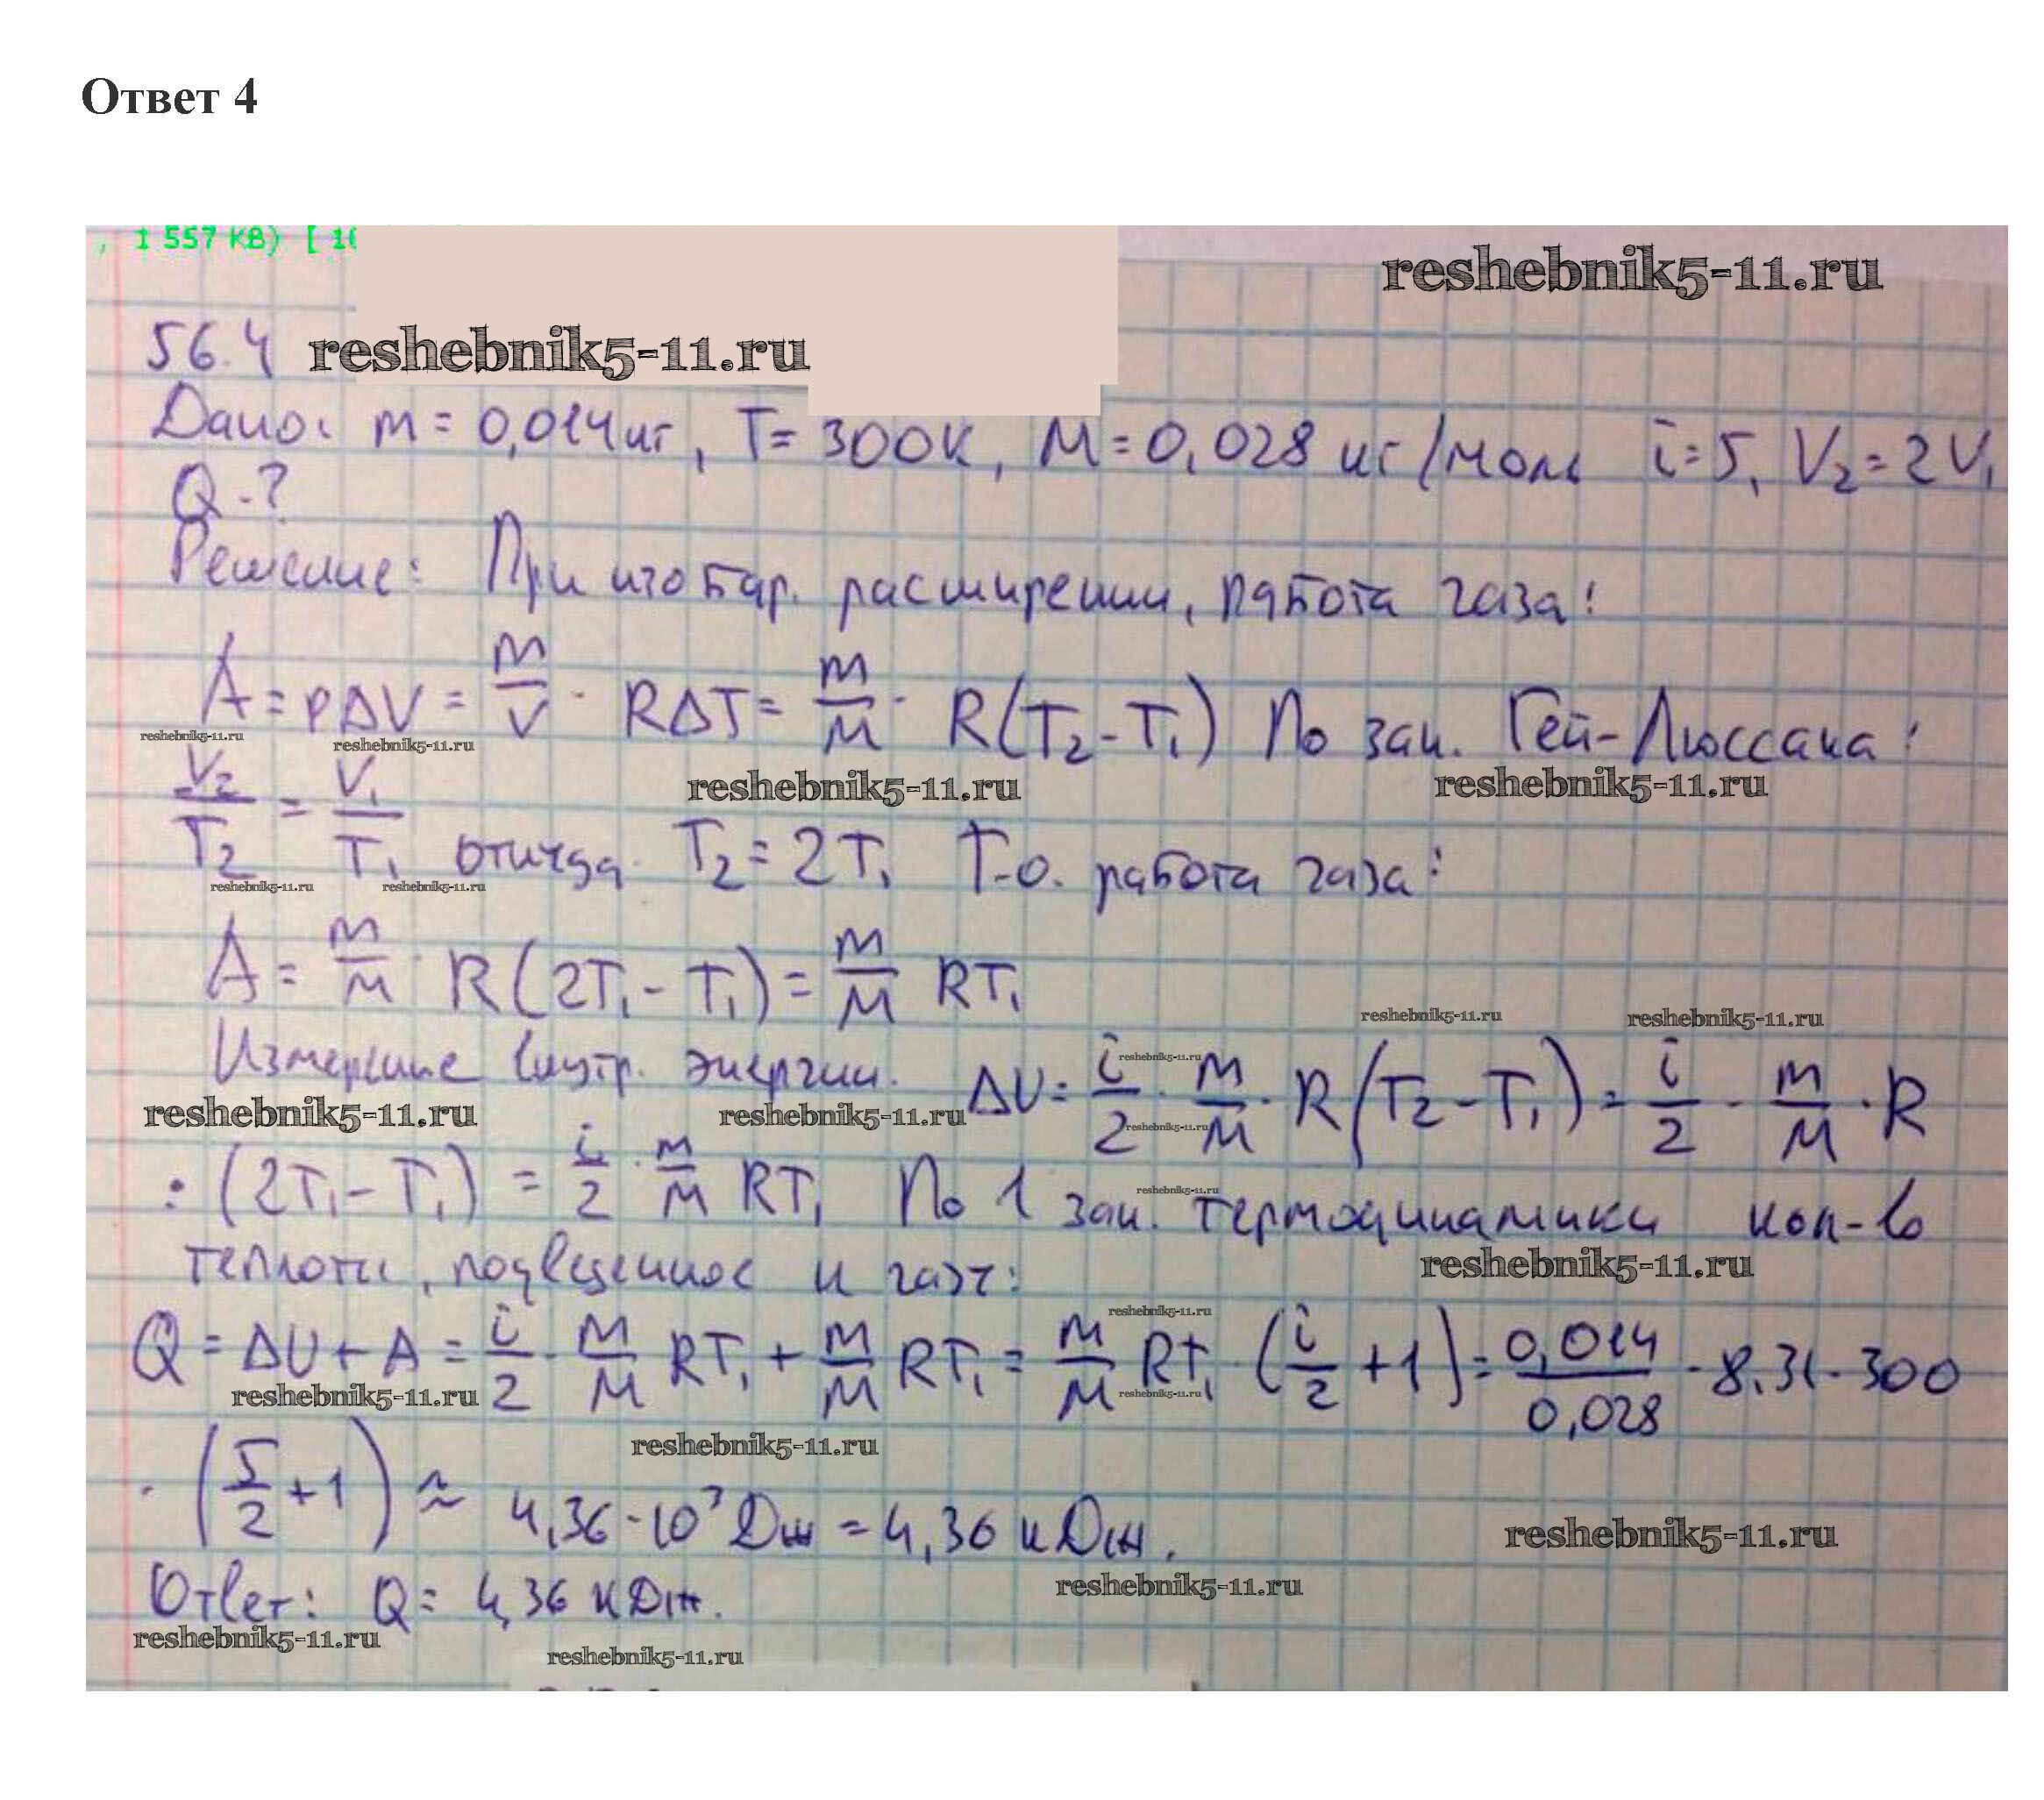 Ответ 4
, 1 557 KB) [ 1
reshebnik5-11.ru
56.4 reshebnik5-11.ru
Дано: m = 0,014 кг, T = 300К, M = 0,028 кг/моль i = 5, V₂ = 2V₁
Q - ?
Решение: При изобар. расширении, работа газа:
A = pΔV = m/V · RΔT = m/M · R(T₂ - T₁) По зак. Гей-Люссака:
reshebnik5-11.ru reshebnik5-11.ru
reshebnik5-11.ru reshebnik5-11.ru
V₂/T₂ = V₁/T₁ откуда T₂ = 2T₁ Т.о. работа газа:
reshebnik5-11.ru reshebnik5-11.ru
A = m/M · R(2T₁ - T₁) = m/M RT₁
reshebnik5-11.ru reshebnik5-11.ru
reshebnik5-11.ru
Измерение внутр. энергии. ΔU = i/2 · m/M · R(T₂ - T₁) = i/2 · m/M · R
reshebnik5-11.ru reshebnik5-11.ru reshebnik5-11.ru
· (2T₁ - T₁) = i/2 · m/M RT₁ По 1 зак. термодинамики кол-во
reshebnik5-11.ru
теплоты, подведенное к газу:
reshebnik5-11.ru
reshebnik5-11.ru
Q = ΔU + A = i/2 · m/M RT₁ + m/M RT₁ = m/M RT₁ · (i/2 + 1) = 0,014/0,028 · 8,31 · 300
reshebnik5-11.ru reshebnik5-11.ru
reshebnik5-11.ru
· (5/2 + 1) ≈ 4,36 · 10³ Дж = 4,36 кДж.
reshebnik5-11.ru
reshebnik5-11.ru
Ответ: Q = 4,36 кДж.
reshebnik5-11.ru
reshebnik5-11.ru